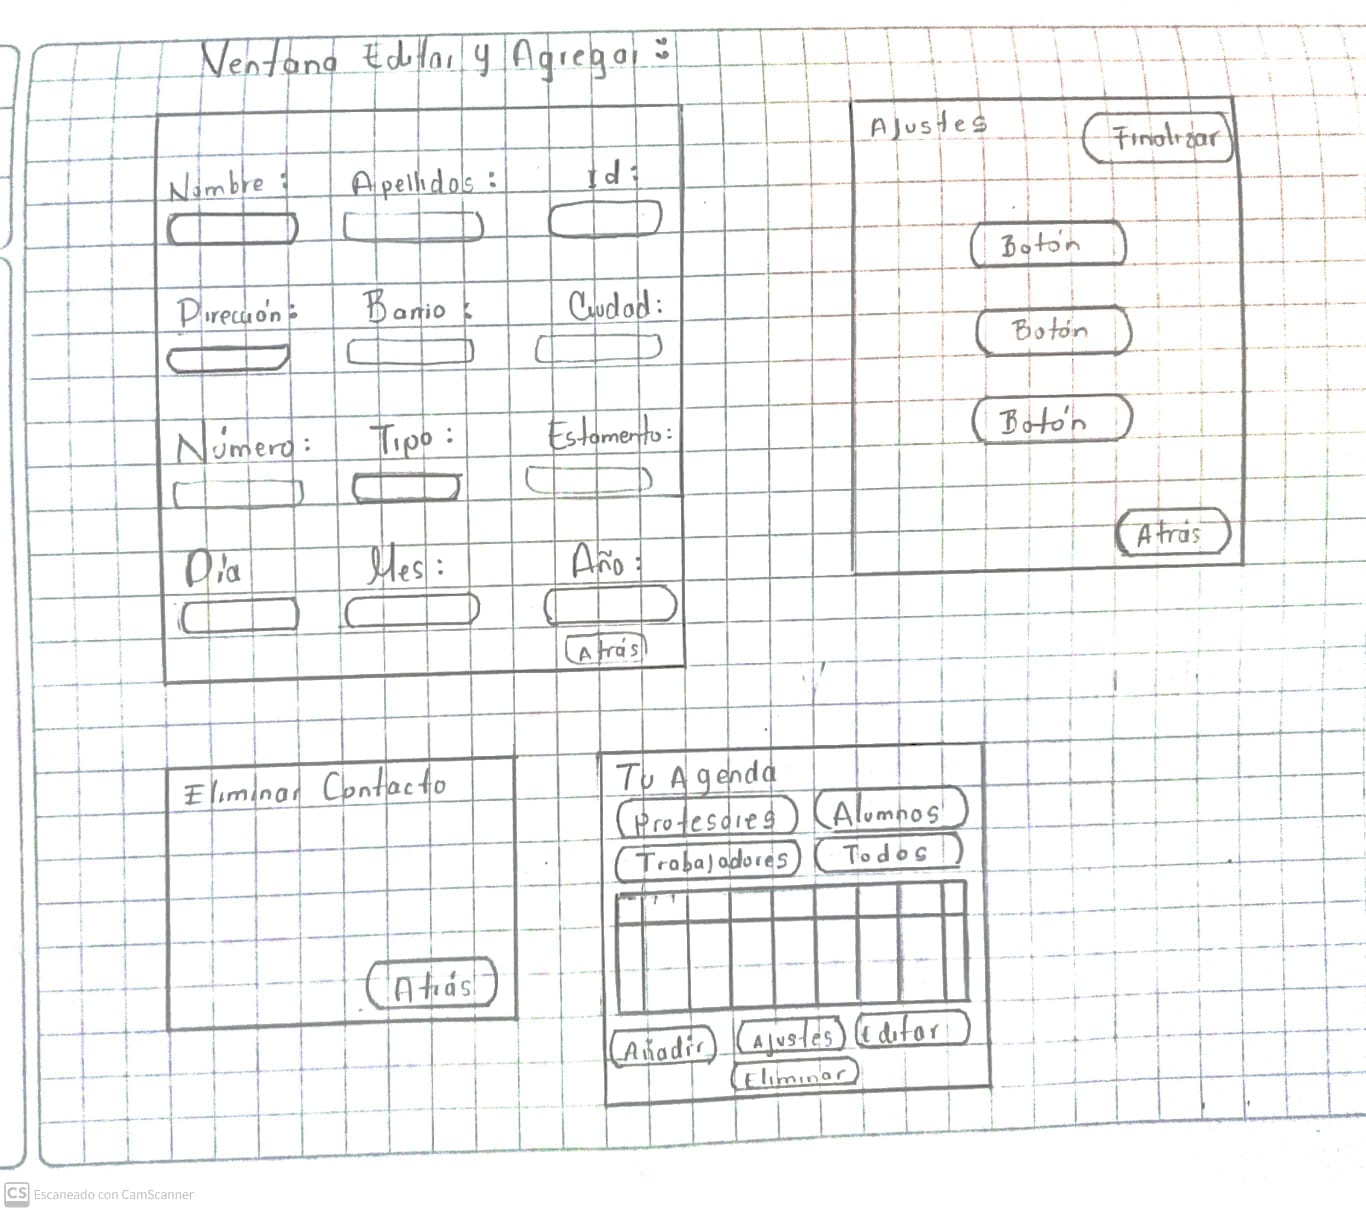 Ventana Editar y Agregar :
Nombre : Apellidos : Id :
Dirección : Barrio : Ciudad :
Número : Tipo : Estamento :
Día Mes : Año :
Atrás
Ajustes Finalizar
Botón
Botón
Botón
Atrás
Eliminar Contacto
Atrás
Tu Agenda
Profesores Alumnos
Trabajadores Todos
Añadir Ajustes Editar
Eliminar
CS Escaneado con CamScanner